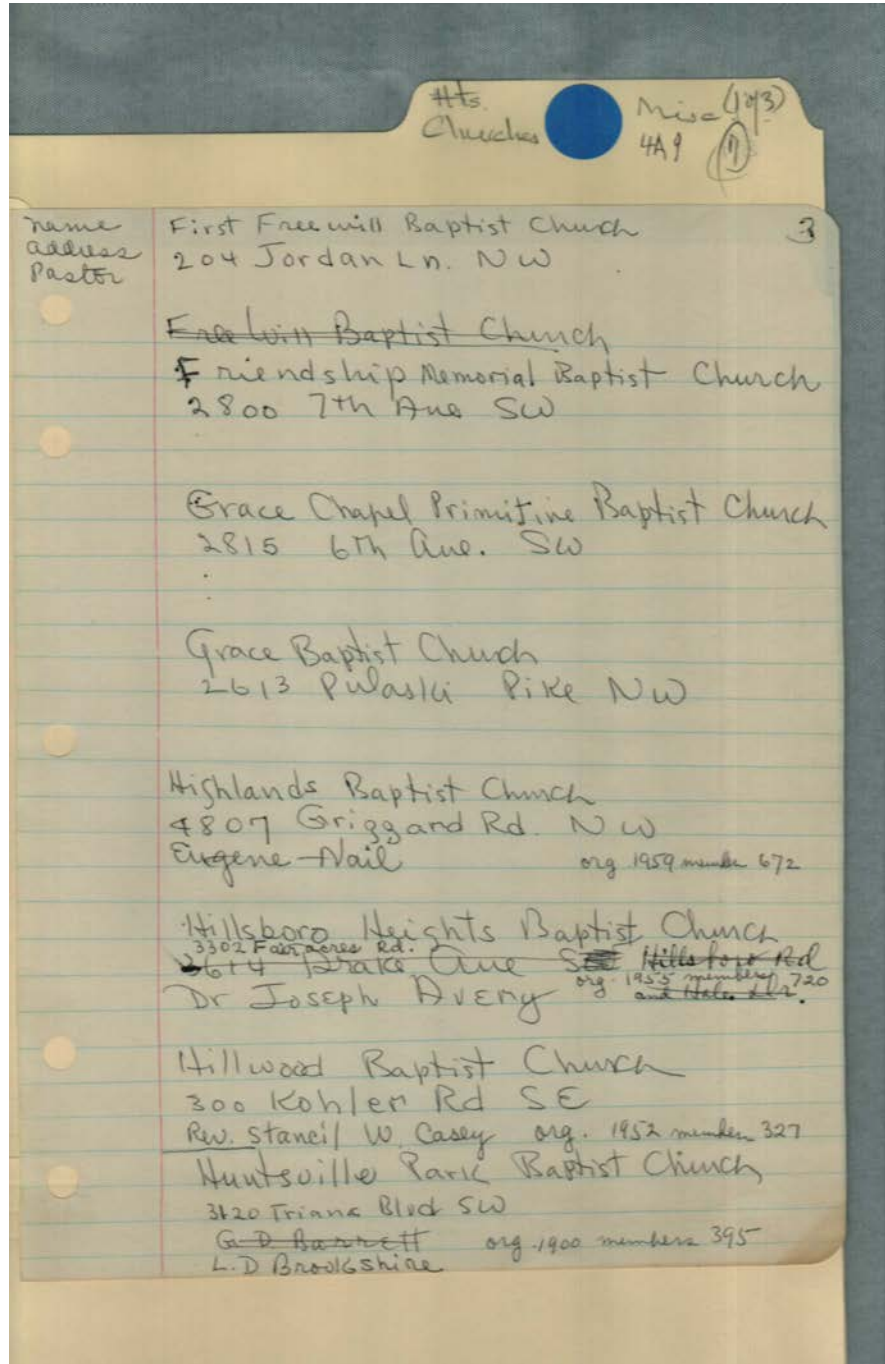 Hts.
Churches
Misc (1 of 3)
4A9
3
name
address
Pastor
First Freewill Baptist Church
204 Jordan Ln. NW
Free Will Baptist Church
Friendship Memorial Baptist Church
2800 7th Ave SW
Grace Chapel Primitive Baptist Church
2815 6th Ave. SW
Grace Baptist Church
2613 Pulaski Pike NW
Highlands Baptist Church
4807 Griggard Rd. NW
Eugene Nail org 1959 member 672
Hillsboro Heights Baptist Church
3302 Fairacres Rd.
3614 Drake Ave Hillsboro Rd
org. 1955 members 720
Dr Joseph Avery and
Hillwood Baptist Church
300 Kohler Rd SE
Rev. Stancil W. Casey org. 1952 member 327
Huntsville Park Baptist Church
3120 Triana Blvd SW
G D Barrett org. 1900 members 395
L. D Brookshire